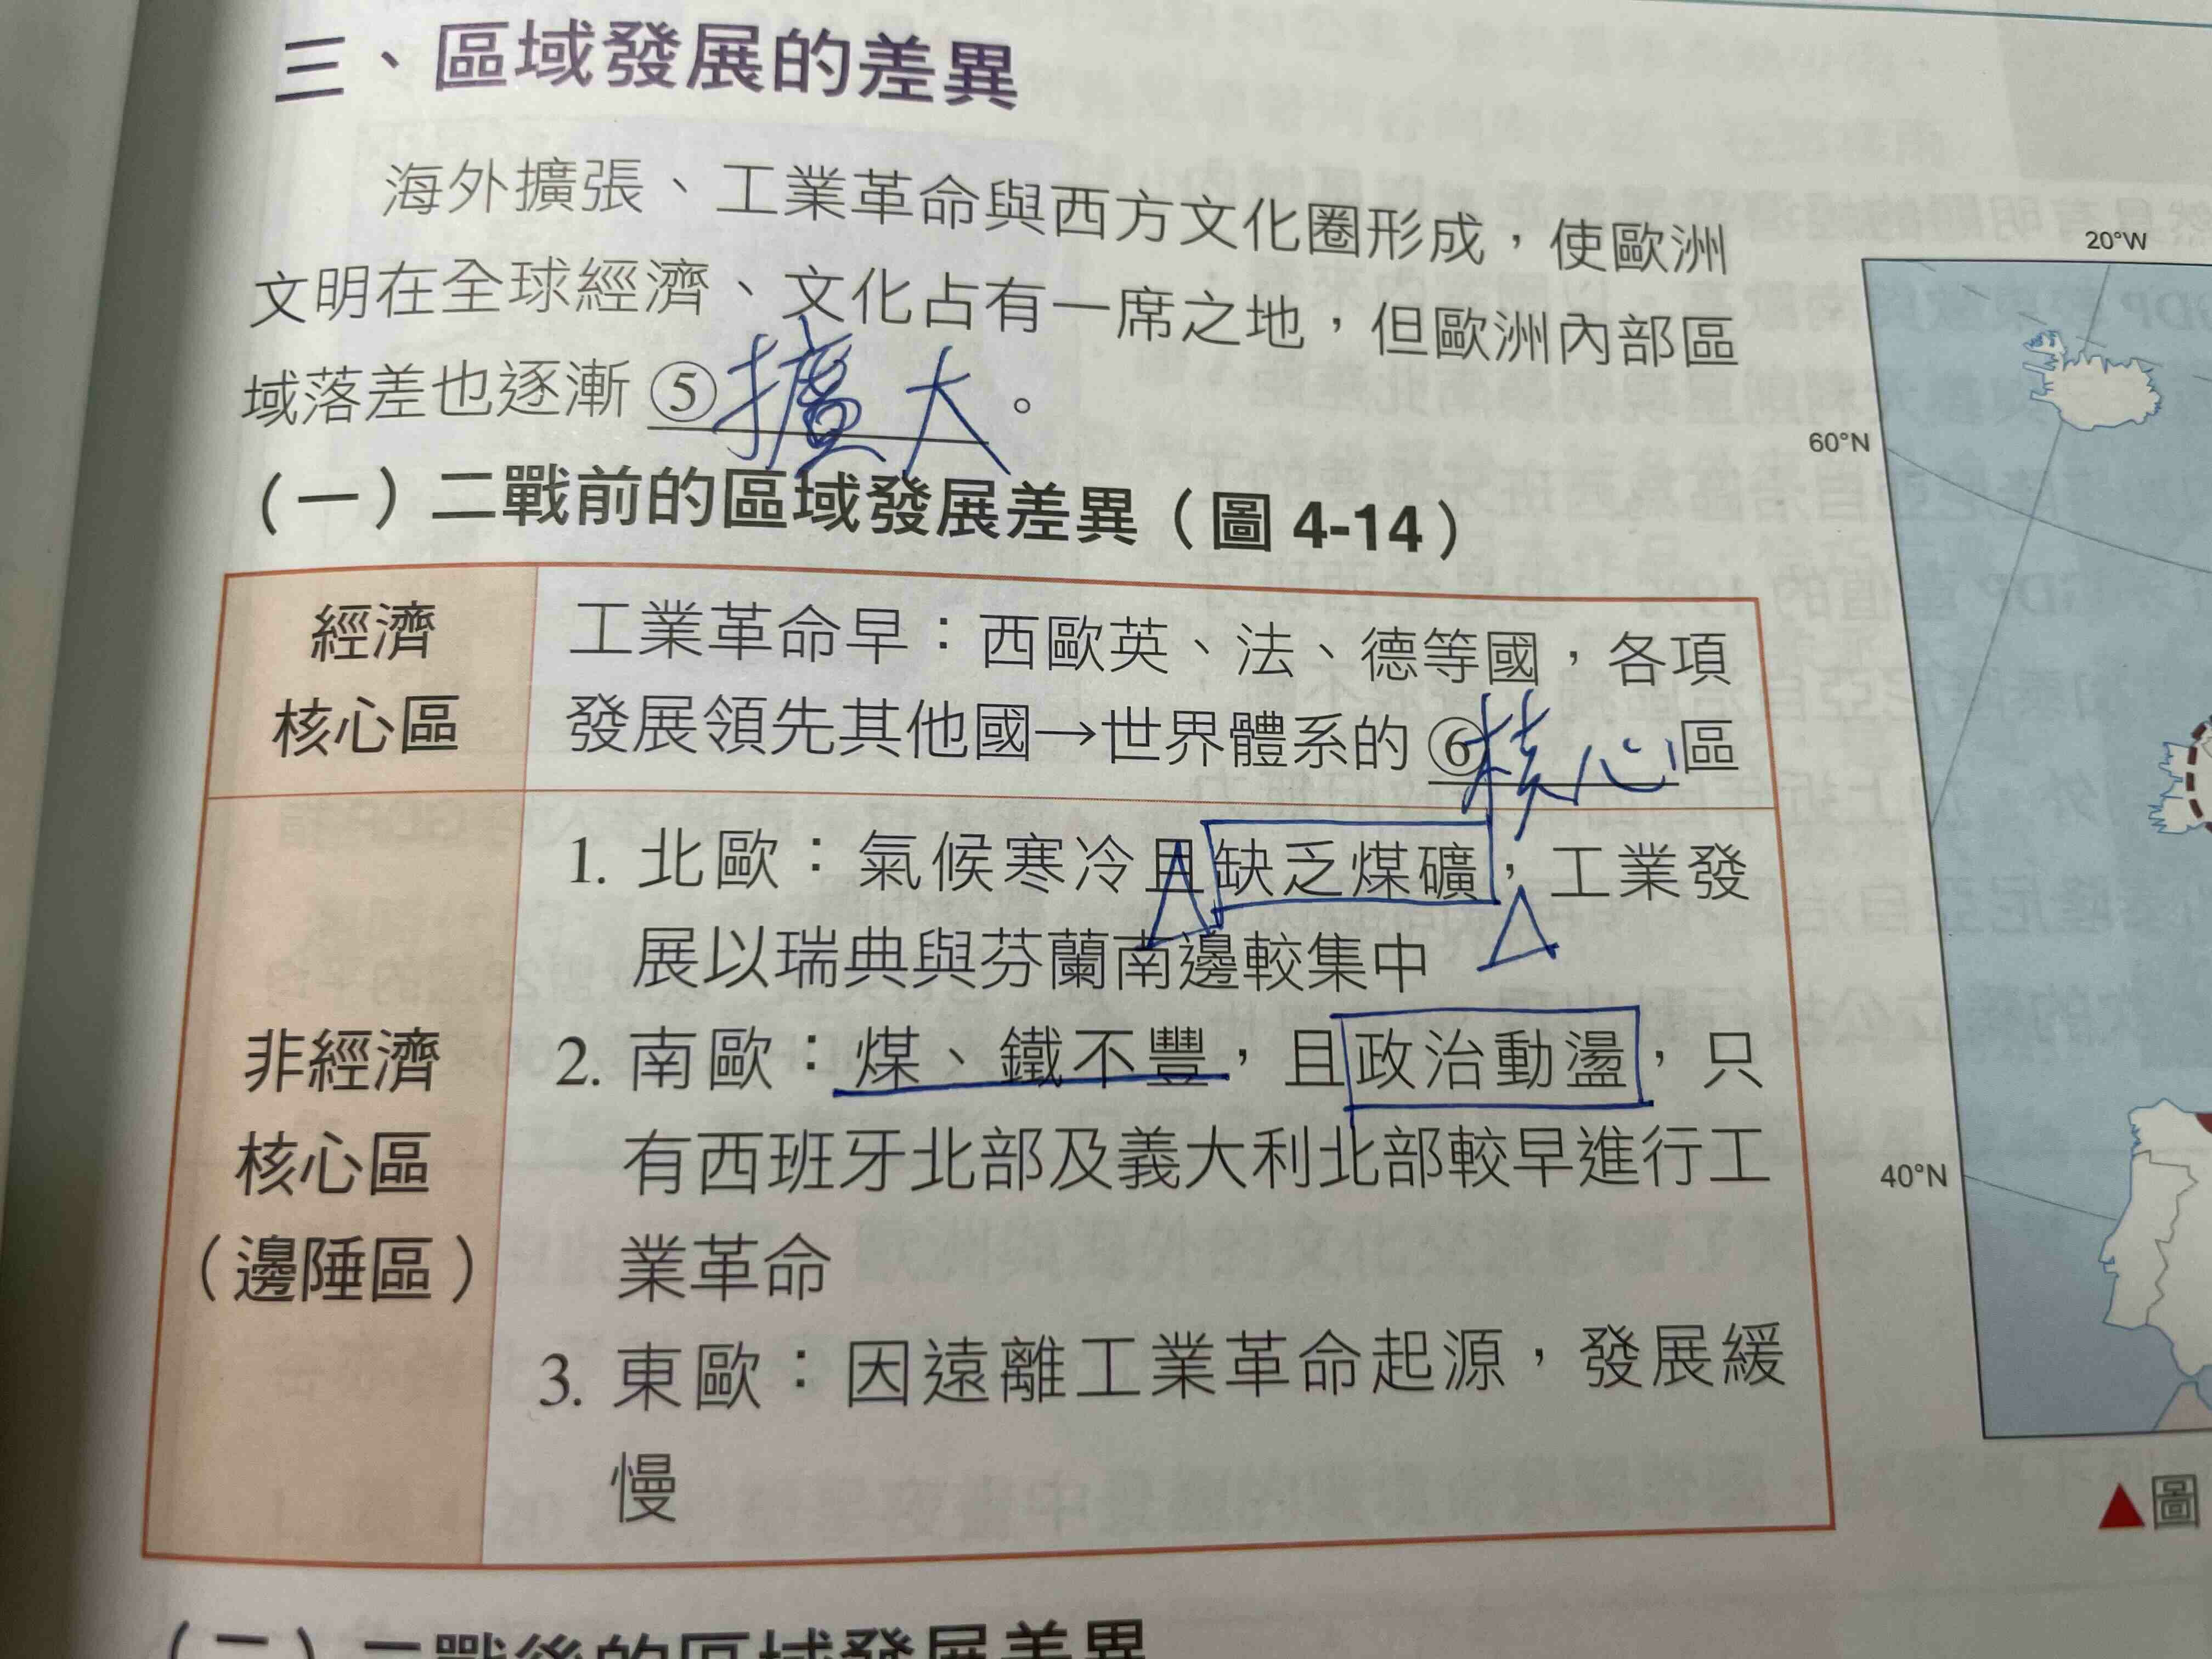 三、區域發展的差異
海外擴張、工業革命與西方文化圈形成，使歐洲
文明在全球經濟、文化占有一席之地，但歐洲內部區
域落差也逐漸⑤擴大。
（一）二戰前的區域發展差異（圖 4-14）
經濟
核心區
工業革命早：西歐英、法、德等國，各項
發展領先其他國→世界體系的⑥核心區
非經濟
核心區
（邊陲區）
1. 北歐：氣候寒冷且缺乏煤礦，工業發
展以瑞典與芬蘭南邊較集中
2. 南歐：煤、鐵不豐，且政治動盪，只
有西班牙北部及義大利北部較早進行工
業革命
3. 東歐：因遠離工業革命起源，發展緩
慢
（二）二戰後的區域發展差異
20°W
60°N
40°N
▲圖